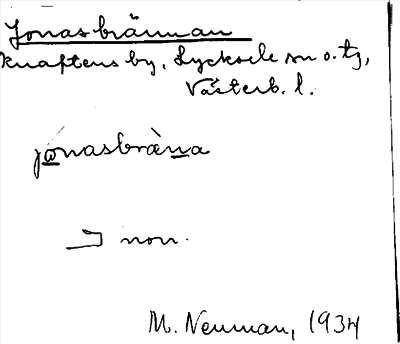 Jonasbrännan
Knaftens by, Lycksele sn o. tg,
Västerb. l.
jo̲nasbràn̲a
⊐ non.
M. Neuman, 1934